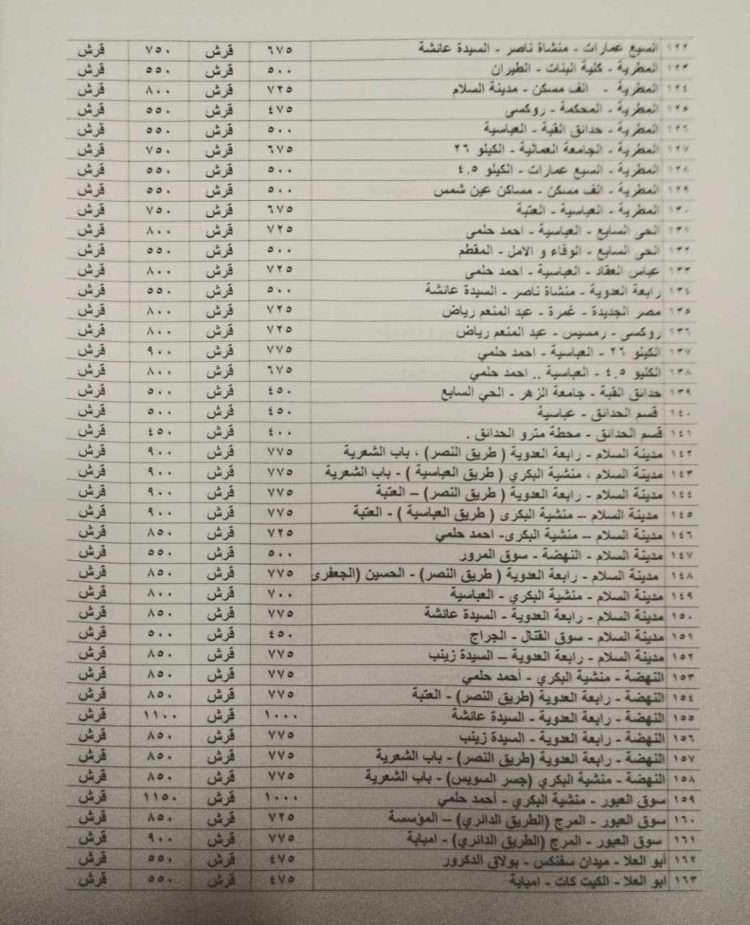 ١٢٢ السبع عمارات - منشأة ناصر - السيدة عائشة ٦٧٥ قرش ٧٥٠ قرش
١٢٣ المطرية - كلية البنات - الطيران ٥٠٠ قرش ٥٥٠ قرش
١٢٤ المطرية - الف مسكن - مدينة السلام ٧٢٥ قرش ٨٠٠ قرش
١٢٥ المطرية - المحكمة - روكسى ٤٧٥ قرش ٥٥٠ قرش
١٢٦ المطرية - حدائق القبة - العباسية ٥٠٠ قرش ٥٥٠ قرش
١٢٧ المطرية - الجامعة العمالية - الكيلو ٢٦ ٦٧٥ قرش ٧٥٠ قرش
١٢٨ المطرية - السبع عمارات - الكيلو ٤,٥ ٥٠٠ قرش ٥٥٠ قرش
١٢٩ المطرية - الف مسكن - مساكن عين شمس ٥٠٠ قرش ٥٥٠ قرش
١٣٠ المطرية - العباسية - العتبة ٦٧٥ قرش ٧٥٠ قرش
١٣١ الحى السابع - العباسية - احمد حلمى ٧٢٥ قرش ٨٠٠ قرش
١٣٢ الحى السابع - الوفاء و الامل - المقطم ٥٠٠ قرش ٥٥٠ قرش
١٣٣ عباس العقاد - العباسية - احمد حلمي ٧٢٥ قرش ٨٠٠ قرش
١٣٤ رابعة العدوية - منشأة ناصر - السيدة عائشة ٥٠٠ قرش ٥٥٠ قرش
١٣٥ مصر الجديدة - غمرة - عبد المنعم رياض ٧٢٥ قرش ٨٠٠ قرش
١٣٦ روكسى - رمسيس - عبد المنعم رياض ٧٢٥ قرش ٨٠٠ قرش
١٣٧ الكيلو ٢٦ - العباسية - احمد حلمي ٧٧٥ قرش ٩٠٠ قرش
١٣٨ الكليو ٤,٥ - العباسية .. احمد حلمي ٦٧٥ قرش ٨٠٠ قرش
١٣٩ حدائق القبة - جامعة الزهر - الحي السابع ٤٥٠ قرش ٥٠٠ قرش
١٤٠ قسم الحدائق - عباسية ٤٥٠ قرش ٥٠٠ قرش
١٤١ قسم الحدائق - محطة مترو الحدائق . ٤٠٠ قرش ٤٥٠ قرش
١٤٢ مدينة السلام - رابعة العدوية ( طريق النصر) ، باب الشعرية ٧٧٥ قرش ٩٠٠ قرش
١٤٣ مدينة السلام ، منشية البكري ( طريق العباسية ) - باب الشعرية ٧٧٥ قرش ٩٠٠ قرش
١٤٤ مدينة السلام - رابعة العدوية ( طريق النصر) – العتبة ٧٧٥ قرش ٩٠٠ قرش
١٤٥ مدينة السلام – منشية البكرى ( طريق العباسية ) - العتبة ٧٧٥ قرش ٩٠٠ قرش
١٤٦ مدينة السلام – منشية البكرى- احمد حلمي ٧٢٥ قرش ٨٥٠ قرش
١٤٧ مدينة السلام - النهضة - سوق المرور ٥٠٠ قرش ٥٥٠ قرش
١٤٨ مدينة السلام - رابعة العدوية ( طريق النصر) - الحسين (الجعفرى ٧٧٥ قرش ٨٥٠ قرش
١٤٩ مدينة السلام - منشية البكري - العباسية ٧٠٠ قرش ٨٠٠ قرش
١٥٠ مدينة السلام - رابعة العدوية - السيدة عائشة ٧٧٥ قرش ٨٥٠ قرش
١٥١ مدينة السلام - سوق القنال - الجراج ٤٥٠ قرش ٥٠٠ قرش
١٥٢ مدينة السلام - رابعة العدوية – السيدة زينب ٧٧٥ قرش ٨٥٠ قرش
١٥٣ النهضة - منشية البكري - أحمد حلمي ٧٧٥ قرش ٨٥٠ قرش
١٥٤ النهضة - رابعة العدوية (طريق النصر) - العتبة ٧٧٥ قرش ٨٥٠ قرش
١٥٥ النهضة - رابعة العدوية - السيدة عائشة ١٠٠٠ قرش ١١٠٠ قرش
١٥٦ النهضة - رابعة العدوية - السيدة زينب ٧٧٥ قرش ٨٥٠ قرش
١٥٧ النهضة - رابعة العدوية (طريق النصر) - باب الشعرية ٧٧٥ قرش ٨٥٠ قرش
١٥٨ النهضة - منشية البكري (جسر السويس) - باب الشعرية ٧٧٥ قرش ٨٥٠ قرش
١٥٩ سوق العبور - منشية البكري - أحمد حلمي ١٠٠٠ قرش ١١٥٠ قرش
١٦٠ سوق العبور - المرج (الطريق الدائري) – المؤسسة ٧٢٥ قرش ٨٥٠ قرش
١٦١ سوق العبور - المرج (الطريق الدائري) - امبابة ٧٧٥ قرش ٩٠٠ قرش
١٦٢ أبو العلا - ميدان سفنكس - بولاق الدكرور ٤٧٥ قرش ٥٥٠ قرش
١٦٣ ابو العلا - الكيت كات - امبابة ٤٧٥ قرش ٥٥٠ قرش